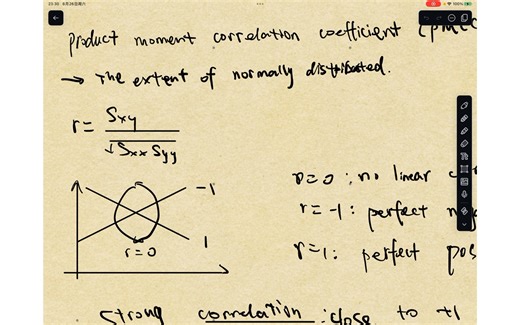 product moment correlation coefficient (pmcc
→ The extent of normally distributed.
r = Sxy / √Sxx Syy
r=0 : no linear c
r=-1 : perfect neg
r=1 : perfect pos
-1
1
r=0
strong correlation : close to ±1